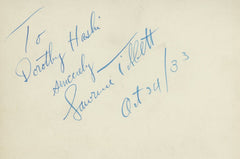 To
Dorothy Hoshi
sincerely
Lawrence Tibbett
Oct 24/33